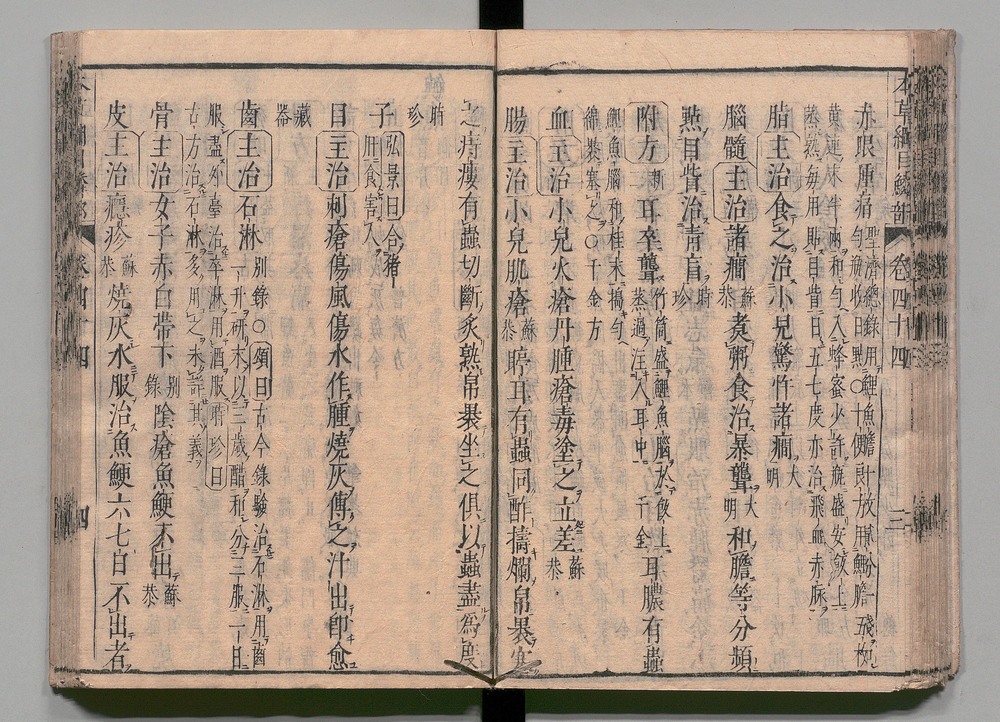 本草綱目鱗部 卷四十四 三
赤眼腫痛 聖濟總錄用鯉魚膽十枚
黃連末半兩和勻入蜂蜜少許瓶盛安飯上
蒸熟每用貼目眥日五七度亦治飛血赤脈
脂 主治 食之治小兒驚忤諸癇 大明
腦髓 主治 諸癇 蘇恭 煮粥食治暴聾 大明 和膽等分頻
點目眥治青盲 時珍
附方 新 耳卒聾 竹筒盛鯉魚腦於飯上
蒸過注入耳中 千金 耳膿有蟲
鯉魚腦和桂末擣勻
綿裹塞之〇千金方
血 主治 小兒火瘡丹腫瘡毒塗之立差 蘇恭
腸 主治 小兒肌瘡 蘇恭 聤耳有蟲同酢擣爛帛裹塞
之痔瘻有蟲切斷炙熟帛裹坐之俱以蟲盡為度
時珍
子 弘景曰合豬
肝食害人
目 主治 刺瘡傷風傷水作腫燒灰傅之汁出即愈
藏器
齒 主治 石淋 別錄〇頌曰古今錄驗治石淋用齒
一升研末以三歲醋和分三服一日
服盡外臺治卒淋用酒服時珍曰
古方治石淋多用之未詳其義
骨 主治 女子赤白帶下 別錄 陰瘡魚鯁不出 蘇恭
皮 主治 癮疹 蘇恭 燒灰水服治魚鯁六七日不出者
四十四 四